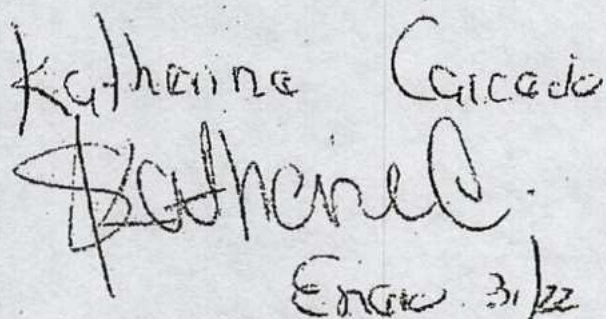 Katherine Caicedo
Katherine C.
Enero 31/22